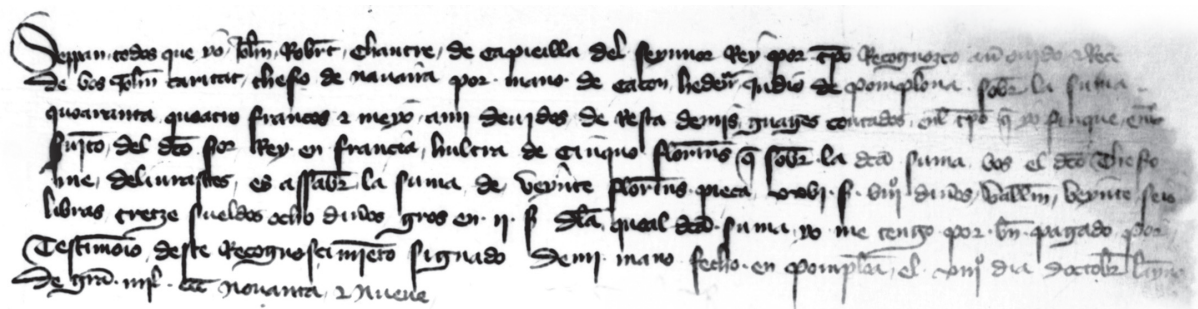 Seppan todos que yo Johan Robert chantre de capieilla del seynnor Rey por tpo Recognozco auer ouido & Rece
de vos Johan caritat theso de nauarra por mano de eaton hedeñ judio de pomplona sobre la suma
quoaranta quoatro francos & meyo a mi deuidos de Resta de mis guages contados en el tpo q yo finque en
suito del dco seynor Rey en francia hultra de cinquo florines q sobre la dca suma vos el dco theso
me deliurastes es assaber la suma de veynte florines pieça xxvi s viii dineros vallen veynte seis
libras tretze sueldos ocho dineros gros en ii s De la qual dca suma yo me tengo por bn pagado por
Testimonio deste Recognoscimiento signado de mi mano fecho en pomplona el xviiiº dia doctobre laynno
de gracia mil ccc nouanta & nueue